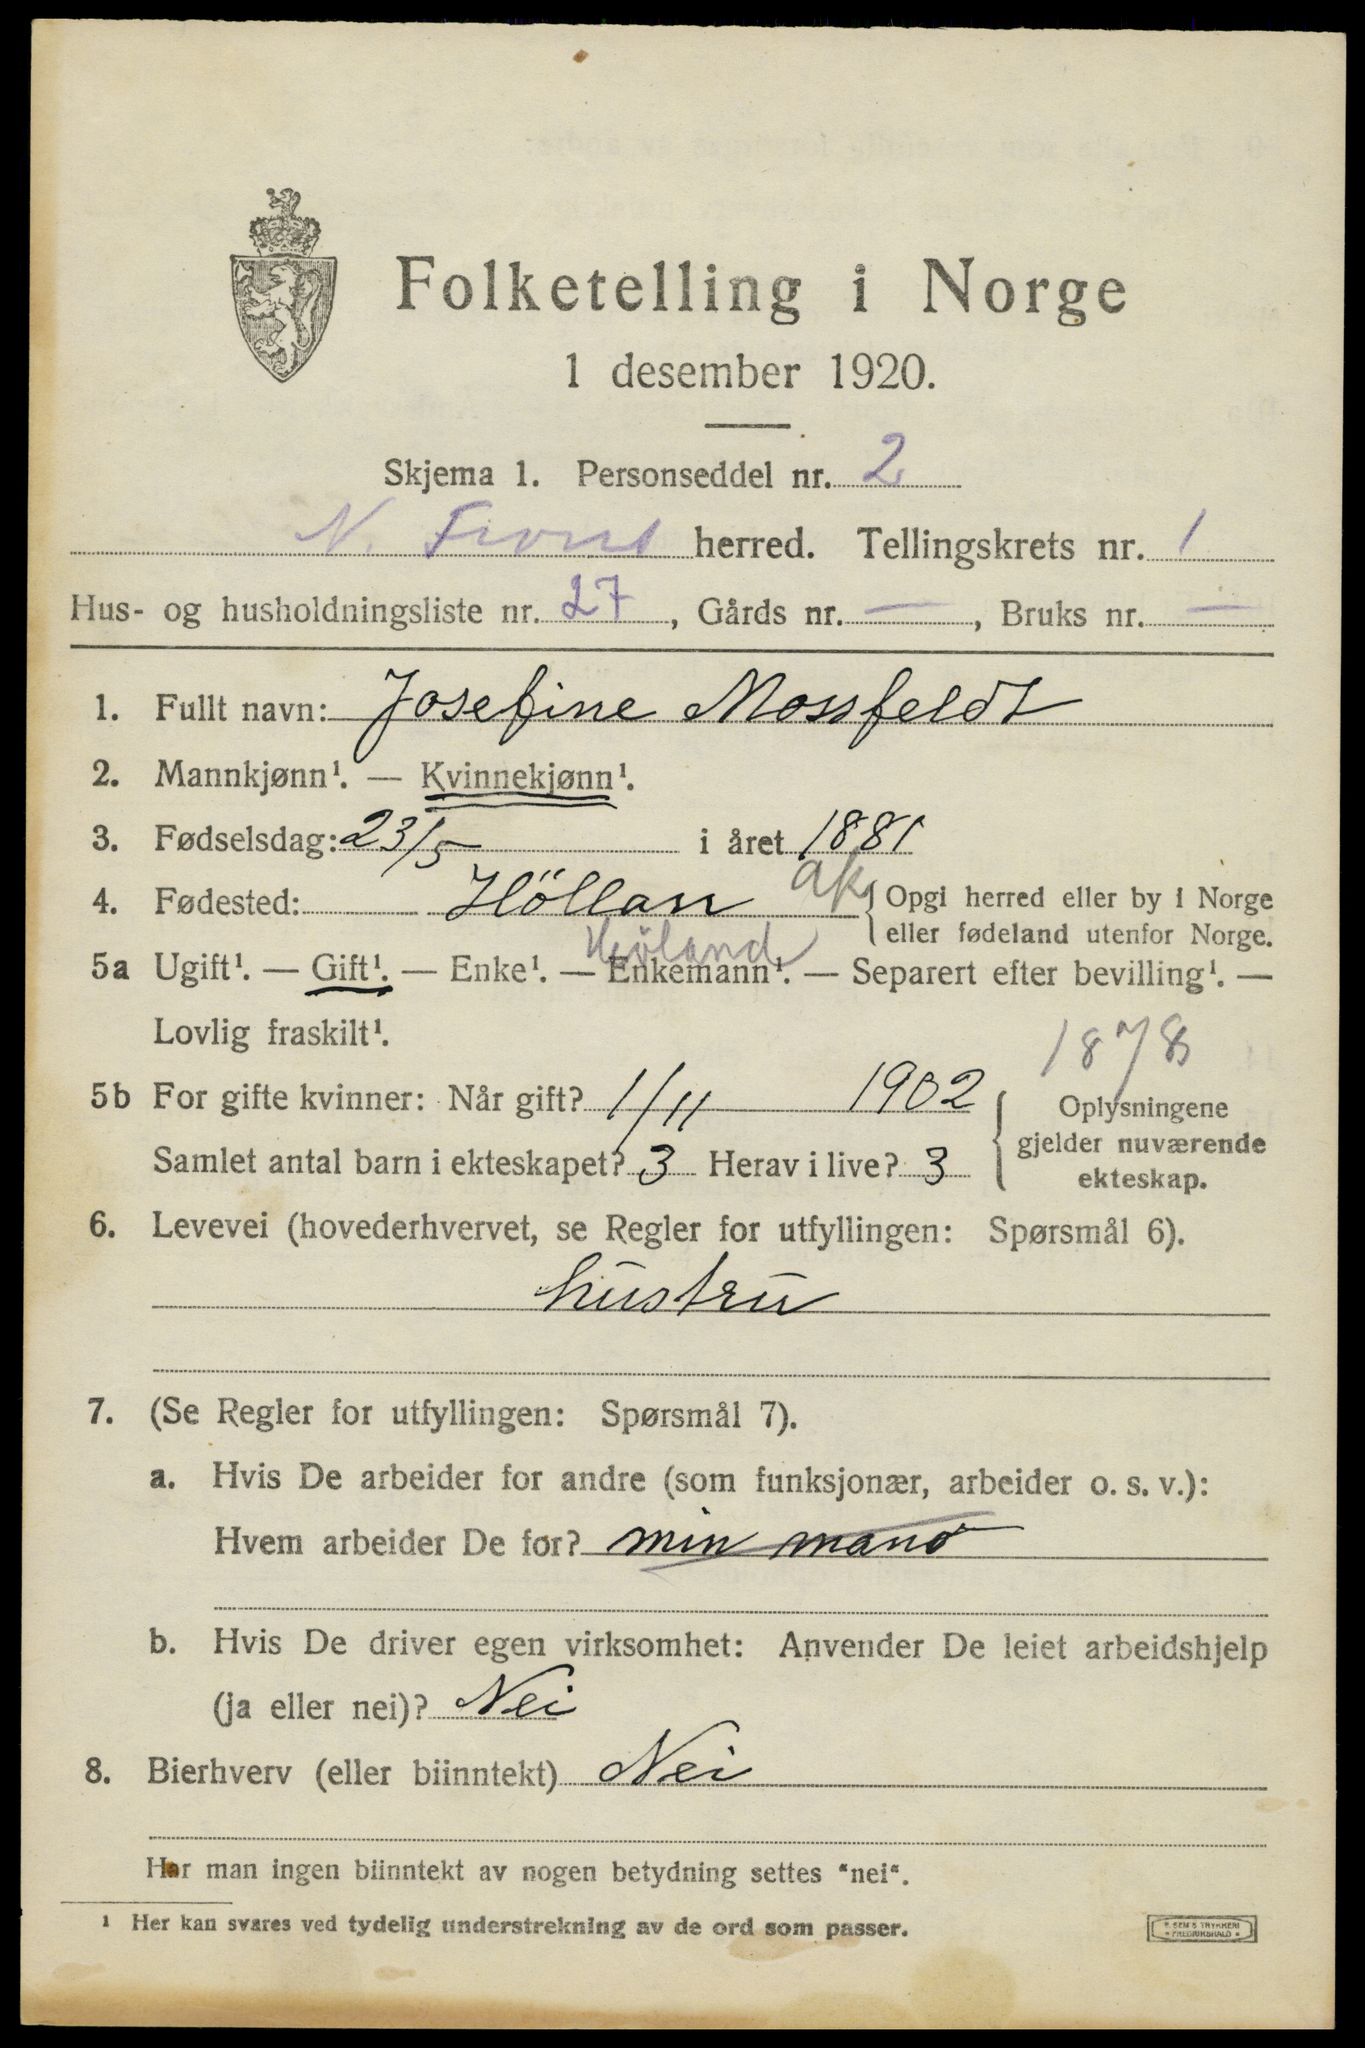 Folketelling i Norge
1 desember 1920.
Skjema 1. Personseddel nr. 2
N. Fron herred. Tellingskrets nr. 1
Hus- og husholdningsliste nr. 27, Gårds nr. —, Bruks nr. —
1. Fullt navn: Josefine Mossfeldt
2. Mannkjønn¹. — Kvinnekjønn¹.
3. Fødselsdag: 23/5 i året 1881
4. Fødested: Höllan Ak { Opgi herred eller by i Norge
eller fødeland utenfor Norge.
Høland
5a Ugift¹. — Gift¹. — Enke¹. — Enkemann¹. — Separert efter bevilling¹. —
Lovlig fraskilt¹.
1878
5b For gifte kvinner: Når gift? 1/11 1902 { Oplysningene
gjelder nuværende
ekteskap.
Samlet antal barn i ekteskapet? 3 Herav i live? 3
6. Levevei (hovederhvervet, se Regler for utfyllingen: Spørsmål 6).
hustru
7. (Se Regler for utfyllingen: Spørsmål 7).
a. Hvis De arbeider for andre (som funksjonær, arbeider o. s. v.):
Hvem arbeider De for? min mand
b. Hvis De driver egen virksomhet: Anvender De leiet arbeidshjelp
(ja eller nei)? Nei
8. Bierhverv (eller biinntekt) Nei
Har man ingen biinntekt av nogen betydning settes "nei".
¹ Her kan svares ved tydelig understrekning av de ord som passer.
E. SEM'S TRYKKERI
• FREDRIKSHALD •